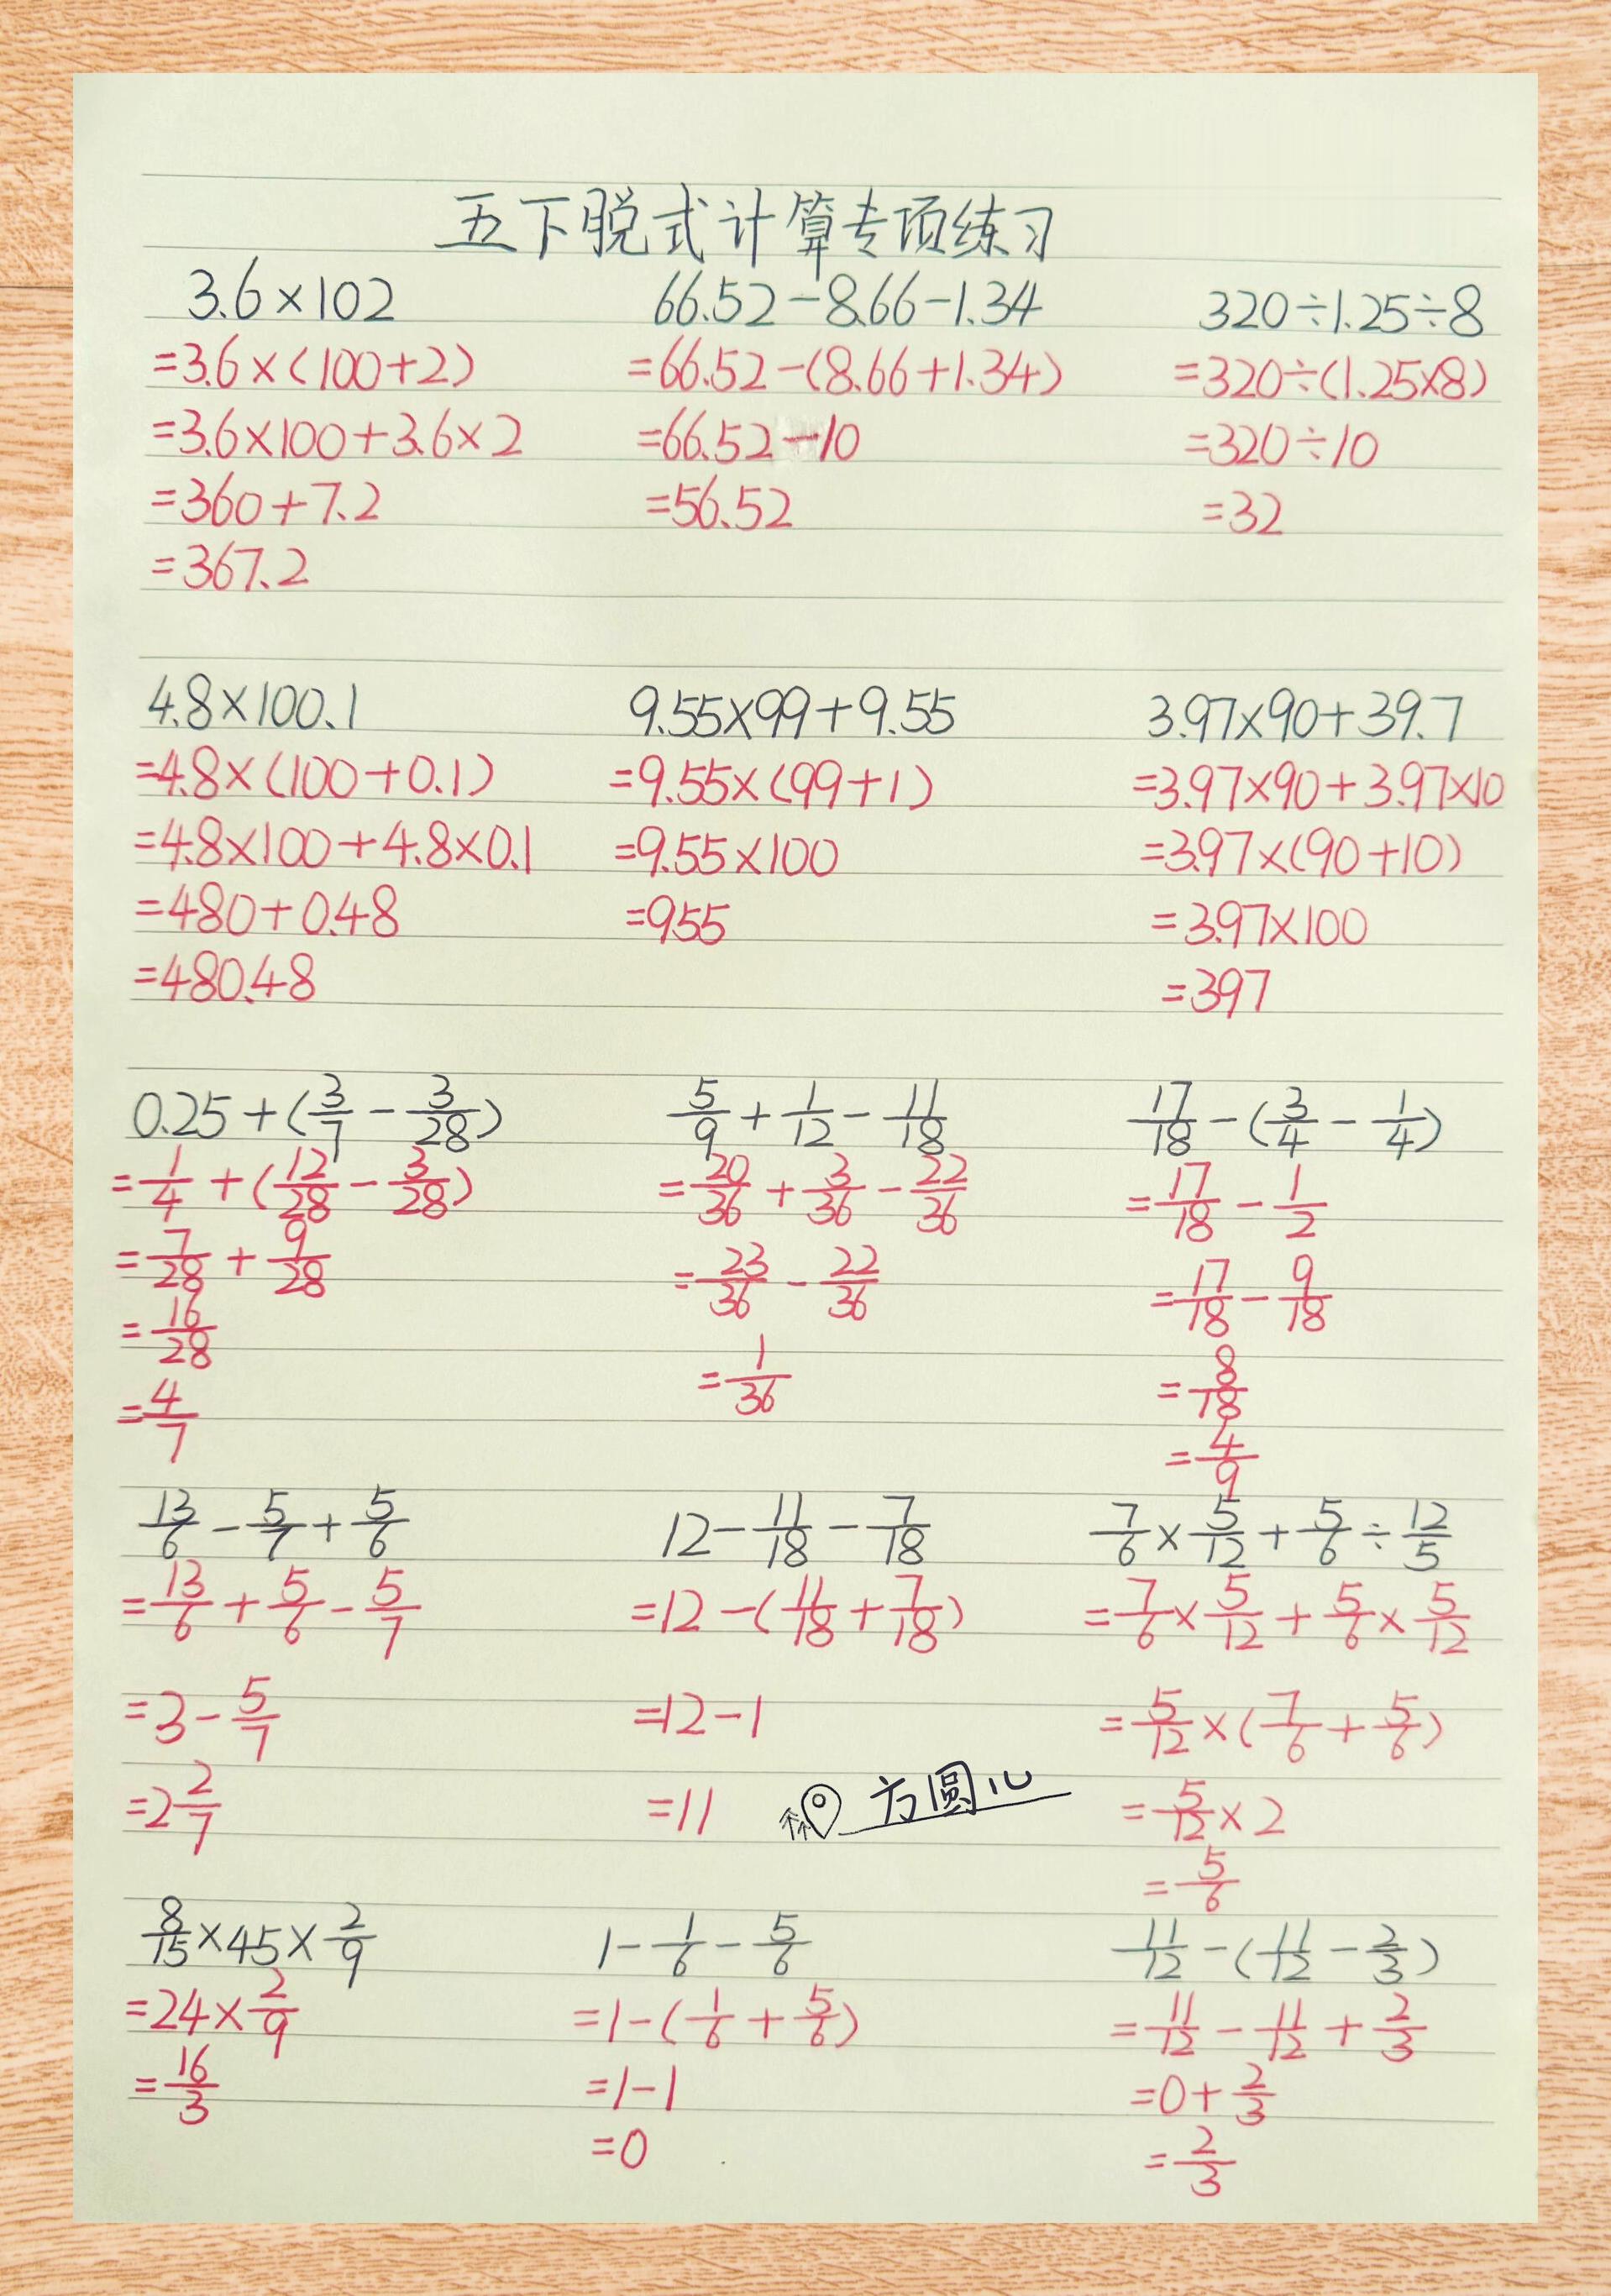 五下脱式计算专项练习
3.6×102
=3.6×(100+2)
=3.6×100+3.6×2
=360+7.2
=367.2
66.52-8.66-1.34
=66.52-(8.66+1.34)
=66.52-10
=56.52
320÷1.25÷8
=320÷(1.25×8)
=320÷10
=32
4.8×100.1
=4.8×(100+0.1)
=4.8×100+4.8×0.1
=480+0.48
=480.48
9.55×99+9.55
=9.55×(99+1)
=9.55×100
=955
3.97×90+39.7
=3.97×90+3.97×10
=3.97×(90+10)
=3.97×100
=397
0.25+(3/7-3/28)
=1/4+(12/28-3/28)
=7/28+9/28
=16/28
=4/7
5/9+1/12-11/18
=20/36+3/36-22/36
=23/36-22/36
=1/36
17/18-(3/4-1/4)
=17/18-1/2
=17/18-9/18
=8/18
=4/9
13/6-5/7+5/6
=13/6+5/6-5/7
=3-5/7
=2 2/7
12-11/18-7/18
=12-(11/18+7/18)
=12-1
=11
7/6×5/12+5/6÷12/5
=7/6×5/12+5/6×5/12
=5/12×(7/6+5/6)
=5/12×2
=5/6
方圆儿
8/15×45×2/9
=24×2/9
=16/3
1-1/6-5/6
=1-(1/6+5/6)
=1-1
=0
11/12-(11/12-2/3)
=11/12-11/12+2/3
=0+2/3
=2/3